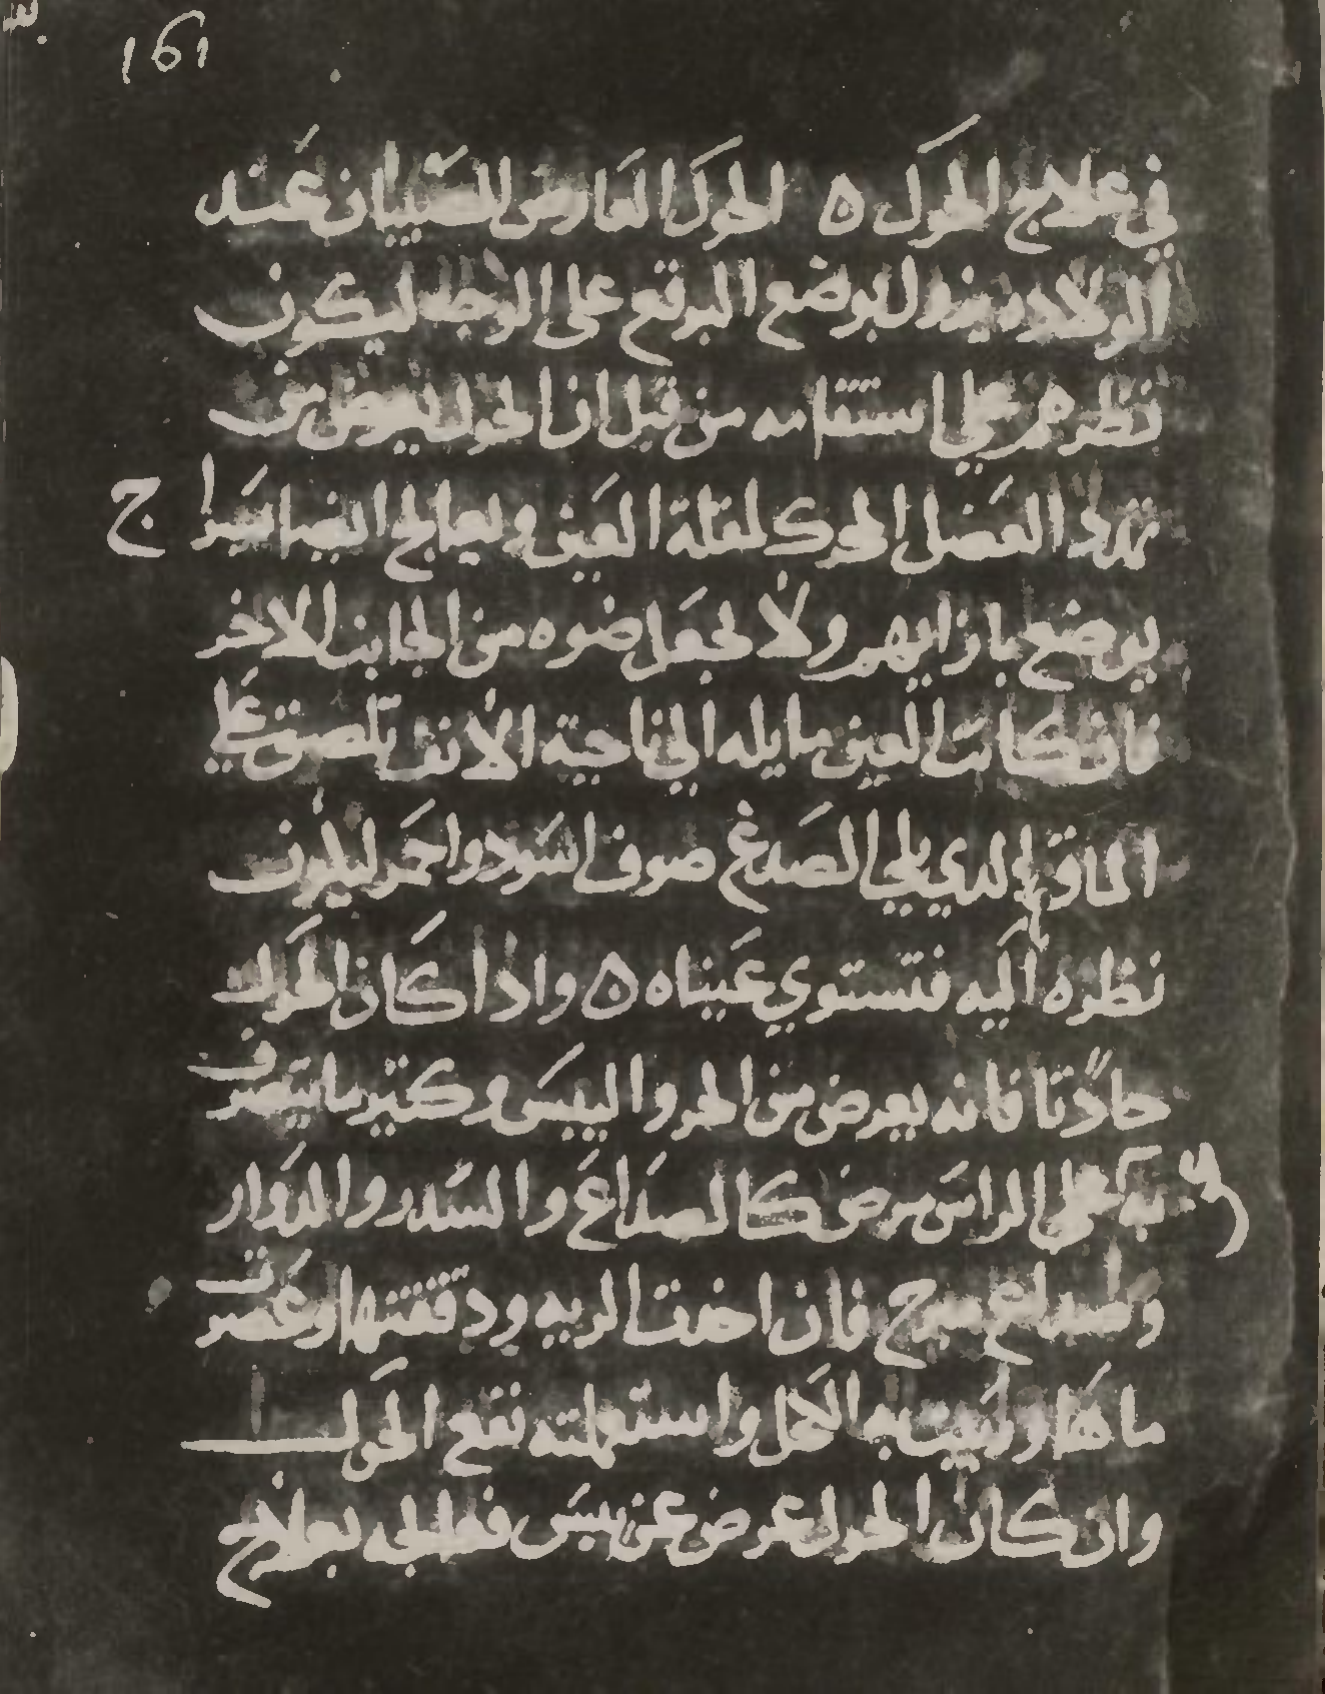 161
في علاج الحول ه الحول العارض للصبيان عند
الولاده يزول بوضع البرقع على الوجه ليكون
نظرهم على استقامه من قبل ان الحول يعرض من
تمدد العضل المحرك لمقلة العين ويعالج ايضا بسراج
يوضع بازايهم ولا يجعل ضوه من الجانب الاخر
فان كانت العين مايله الى ناحية الانف يلصق على
الماق الدي يلي الصدغ صوف اسود او احمر ليكون
نظره اليه فتستوي عيناه ه وادا كان الحول
حادتا فانه يعرض من الحر واليبس وكتير ما يتصرف
به على الراس مرض كالصداع والسدر والدوار
وصداع مبرح فان اخدت الريه ودققتها وعصرت
ماها وليت به الكحل واستعملته نفع الحول
وان كان الحول عرض عن يبس فعالجه بعلاج